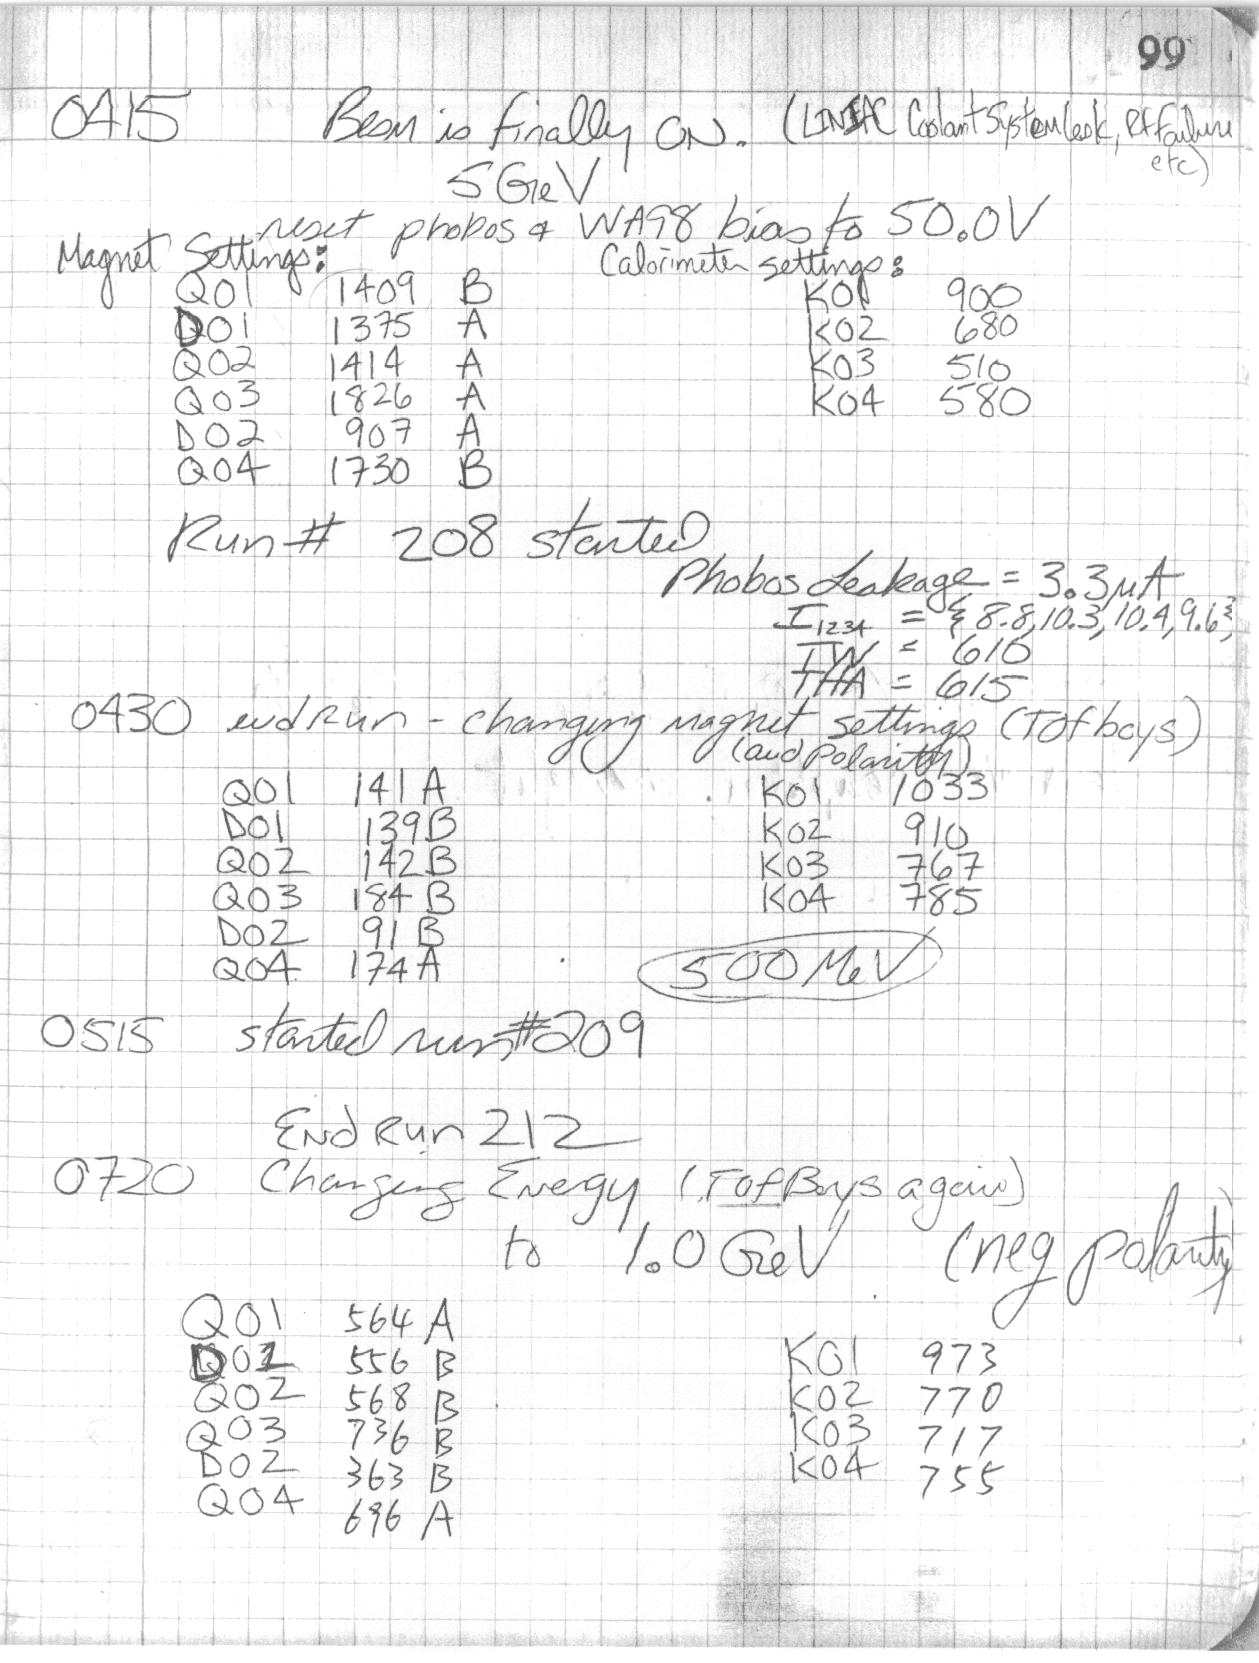 99
0415 Beam is finally ON. (LINAC Coolant System leak, RF failure
etc)
5 GeV
reset phobos & WA98 bias to 50.0V
Magnet Settings: Calorimeter settings:
Q01 1409 B K01 900
D01 1375 A K02 680
Q02 1414 A K03 510
Q03 1826 A K04 580
D02 907 A
Q04 1730 B
Run # 208 started
Phobos Leakage = 3.3 μA
I1234 = {8.8, 10.3, 10.4, 9.6}
TW = 610
THA = 615
0430 end Run - changing magnet settings (TOf boys)
(and Polarity)
Q01 141 A K01 1033
D01 139 B K02 910
Q02 142 B K03 767
Q03 184 B K04 785
D02 91 B
Q04 174 A 500 MeV
0515 started run #209
End Run 212
0720 Changing Energy (Tof Boys again)
to 1.0 GeV (neg polarity)
Q01 564 A
D01 556 B K01 973
Q02 568 B K02 770
Q03 736 B K03 717
D02 363 B K04 755
Q04 696 A